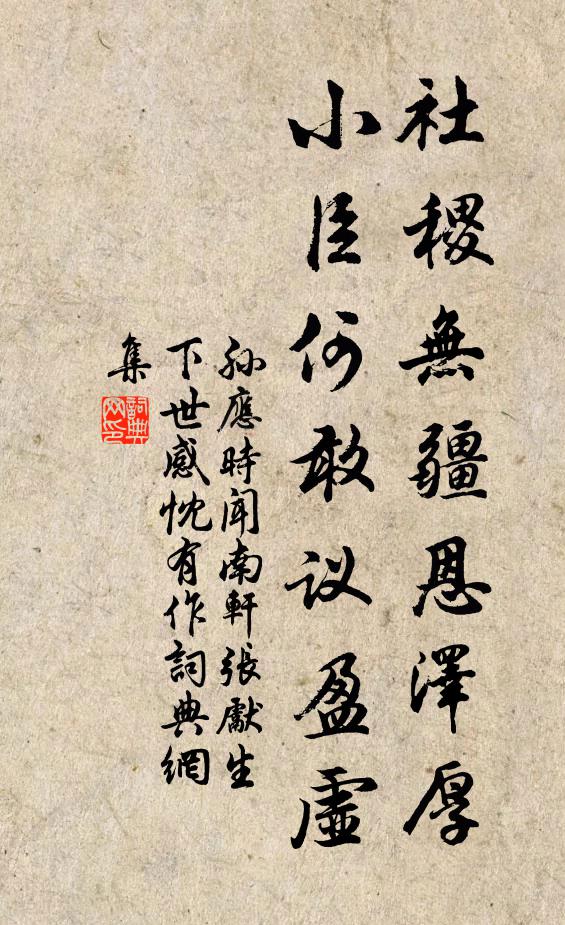 社稷無疆恩澤厚
小臣何敢议盈虛
孙應時闻南軒張獻生
下世感忱有作詞典網
集
詞典網印